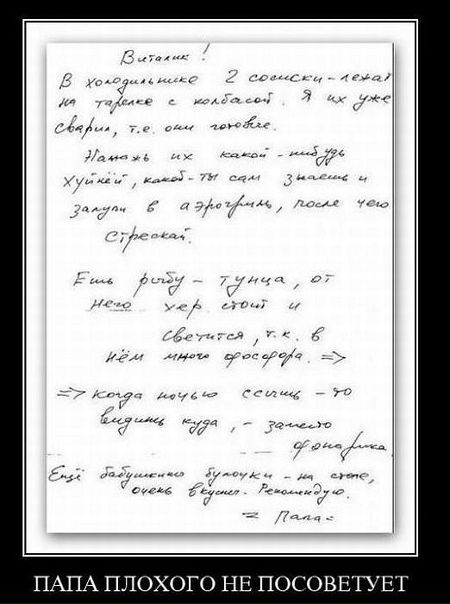 Виталик!
В холодильнике 2 сосиски - лежат
на тарелке с колбасой. Я их уже
сварил, т.е. они готовые.
Намажь их какой-нибудь
хуйнёй, какой - ты сам знаешь и
залупи в аэрогриль, после чего
стрескай.
Ешь рыбу - тунца, от
него хер стоит и
светится, т.к. в
нём много фосфора. =>
=> когда ночью ссышь - то
видишь куда, - заместо
фонарика.
Ещё бабушкины булочки - на столе,
очень вкусно. Рекомендую.
= Папа =
ПАПА ПЛОХОГО НЕ ПОСОВЕТУЕТ